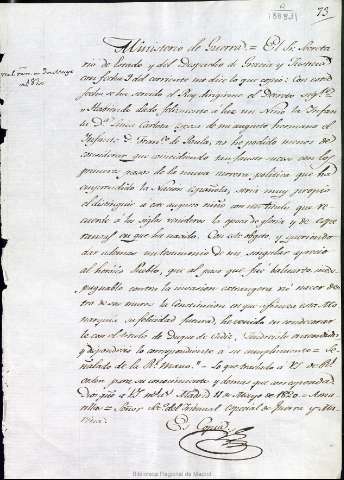 73
Ministerio de Guerra = El Sr. Secreta
rio de Estado y del Despacho de Gracia y Justicia
con fecha 2 del corriente me dice lo que copio: Con esta
fecha se ha servido el Rey dirigirme el Decreto sigte.
Habiendo dado felizmente a luz un Niño la Infan
ta Dª. Luisa Carlota Esposa de mi augusto hermano el
Infante Dn. Franco. de Paula, no he podido menos de
considerar que coincidiendo tan fausto suceso con los
primeros pasos de la nueva carrera política que ha
emprendido la Nacion Española, seria muy propio
el distinguir a este augusto niño con un título que re
cuerde a los siglos venideros la epoca de gloria y de espe
ranzas en que ha nacido. Con este objeto, y queriendo
dar ademas un testimonio de mi singular aprecio
al heroico Pueblo, que al paso que fue baluarte inex
pugnable contra la invasion extrangera vió nacer den
tro de sus muros la Constitucion en que afianza esta Mo
narquía su felicidad futura, he venido en condecorar
lo con el título de Duque de Cadiz. Tendreislo entendido
y dispondreis lo correspondiente a su cumplimiento = Se
ñalado de la Rl. mano = Lo que traslado a V.
para su conocimiento y demas que corresponda
Dios gue. a V. ms. as. Madrid 11 de Mayo de 1820 = Ama
rillas = Señor Srio. del Tribunal especial de Guerra y Ma
rina
Es Copia
Biblioteca Regional de Madrid